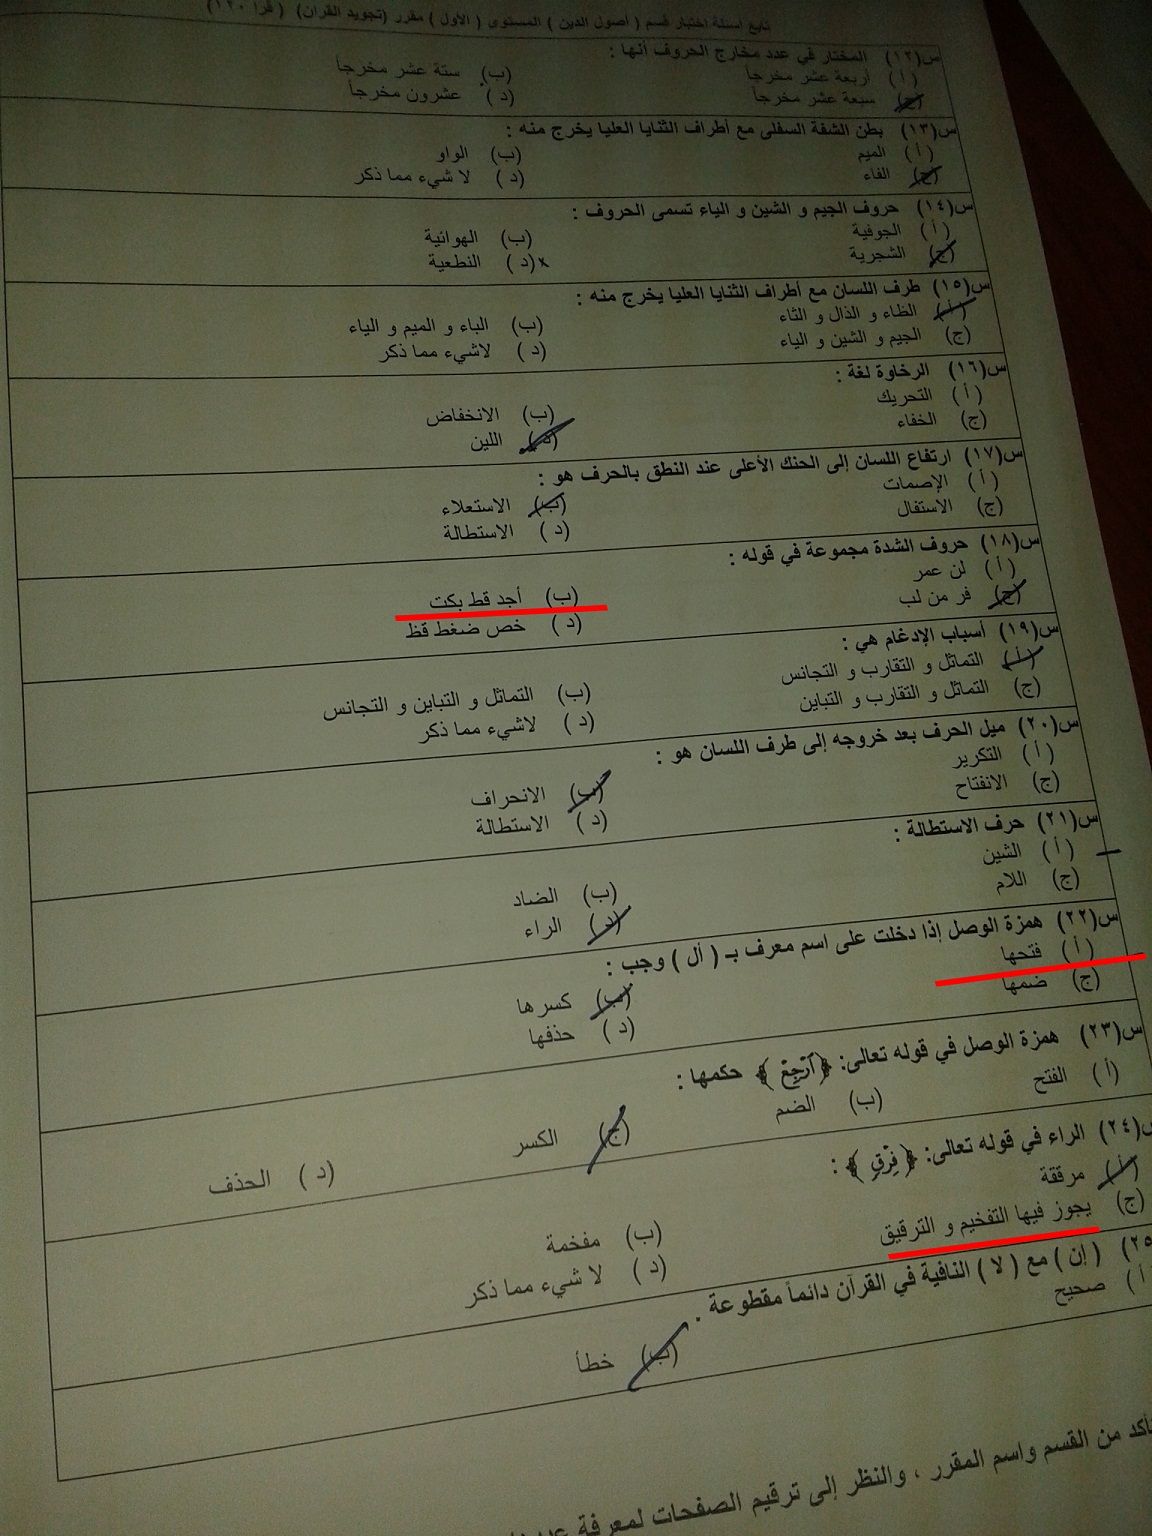 تابع اسئلة اختبار قسم ( أصول الدين ) المستوى ( الأول ) مقرر (تجويد القرآن) ( قرا ١٢٠)
س(١٢) المختار في عدد مخارج الحروف أنها :
( أ ) أربعة عشر مخرجاً (ب) ستة عشر مخرجاً
(ج) سبعة عشر مخرجاً ( د ) عشرون مخرجاً
س(١٣) بطن الشفة السفلى مع أطراف الثنايا العليا يخرج منه :
( أ ) الميم (ب) الواو
(ج) الفاء ( د ) لا شيء مما ذكر
س(١٤) حروف الجيم و الشين و الياء تسمى الحروف :
( أ ) الجوفية (ب) الهوائية
(ج) الشجرية ( د ) النطعية
س(١٥) طرف اللسان مع أطراف الثنايا العليا يخرج منه :
( أ ) الظاء و الذال و الثاء (ب) الباء و الميم و الياء
(ج) الجيم و الشين و الياء ( د ) لاشيء مما ذكر
س(١٦) الرخاوة لغة :
( أ ) التحريك (ب) الانخفاض
(ج) الخفاء ( د ) اللين
س(١٧) ارتفاع اللسان إلى الحنك الأعلى عند النطق بالحرف هو :
( أ ) الإصمات (ب) الاستعلاء
(ج) الاستفال ( د ) الاستطالة
س(١٨) حروف الشدة مجموعة في قوله :
( أ ) لن عمر (ب) أجد قط بكت
(ج) فر من لب ( د ) خص ضغط قظ
س(١٩) أسباب الإدغام هي :
( أ ) التماثل و التقارب و التجانس (ب) التماثل و التباين و التجانس
(ج) التماثل و التقارب و التباين ( د ) لاشيء مما ذكر
س(٢٠) ميل الحرف بعد خروجه إلى طرف اللسان هو :
( أ ) التكرير (ب) الانحراف
(ج) الانفتاح ( د ) الاستطالة
س(٢١) حرف الاستطالة :
( أ ) الشين (ب) الضاد
(ج) اللام ( د ) الراء
س(٢٢) همزة الوصل إذا دخلت على اسم معرف بـ ( أل ) وجب :
( أ ) فتحها (ب) كسرها
(ج) ضمها ( د ) حذفها
س(٢٣) همزة الوصل في قوله تعالى: ﴿ ٱرْجِعْ ﴾ حكمها :
( أ ) الفتح (ب) الضم (ج) الكسر ( د ) الحذف
س(٢٤) الراء في قوله تعالى: ﴿ فِرْقٍ ﴾ :
( أ ) مرققة (ب) مفخمة
(ج) يجوز فيها التفخيم و الترقيق ( د ) لا شيء مما ذكر
٢٥) ( إن ) مع ( لا ) النافية في القرآن دائماً مقطوعة .
أ ) صحيح (ب) خطأ
من القسم واسم المقرر ، والنظر إلى ترقيم الصفحات لمعرفة